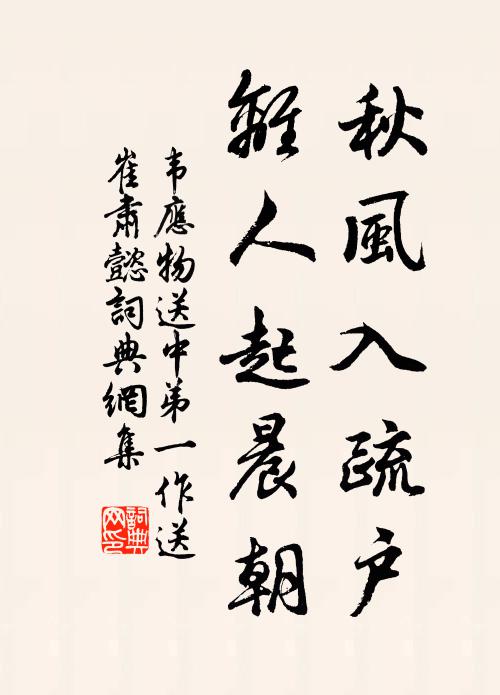 秋風入疏戶
離人起晨朝
韦應物送中弟一作送
崔肅懿詞典網集
詞典
网印